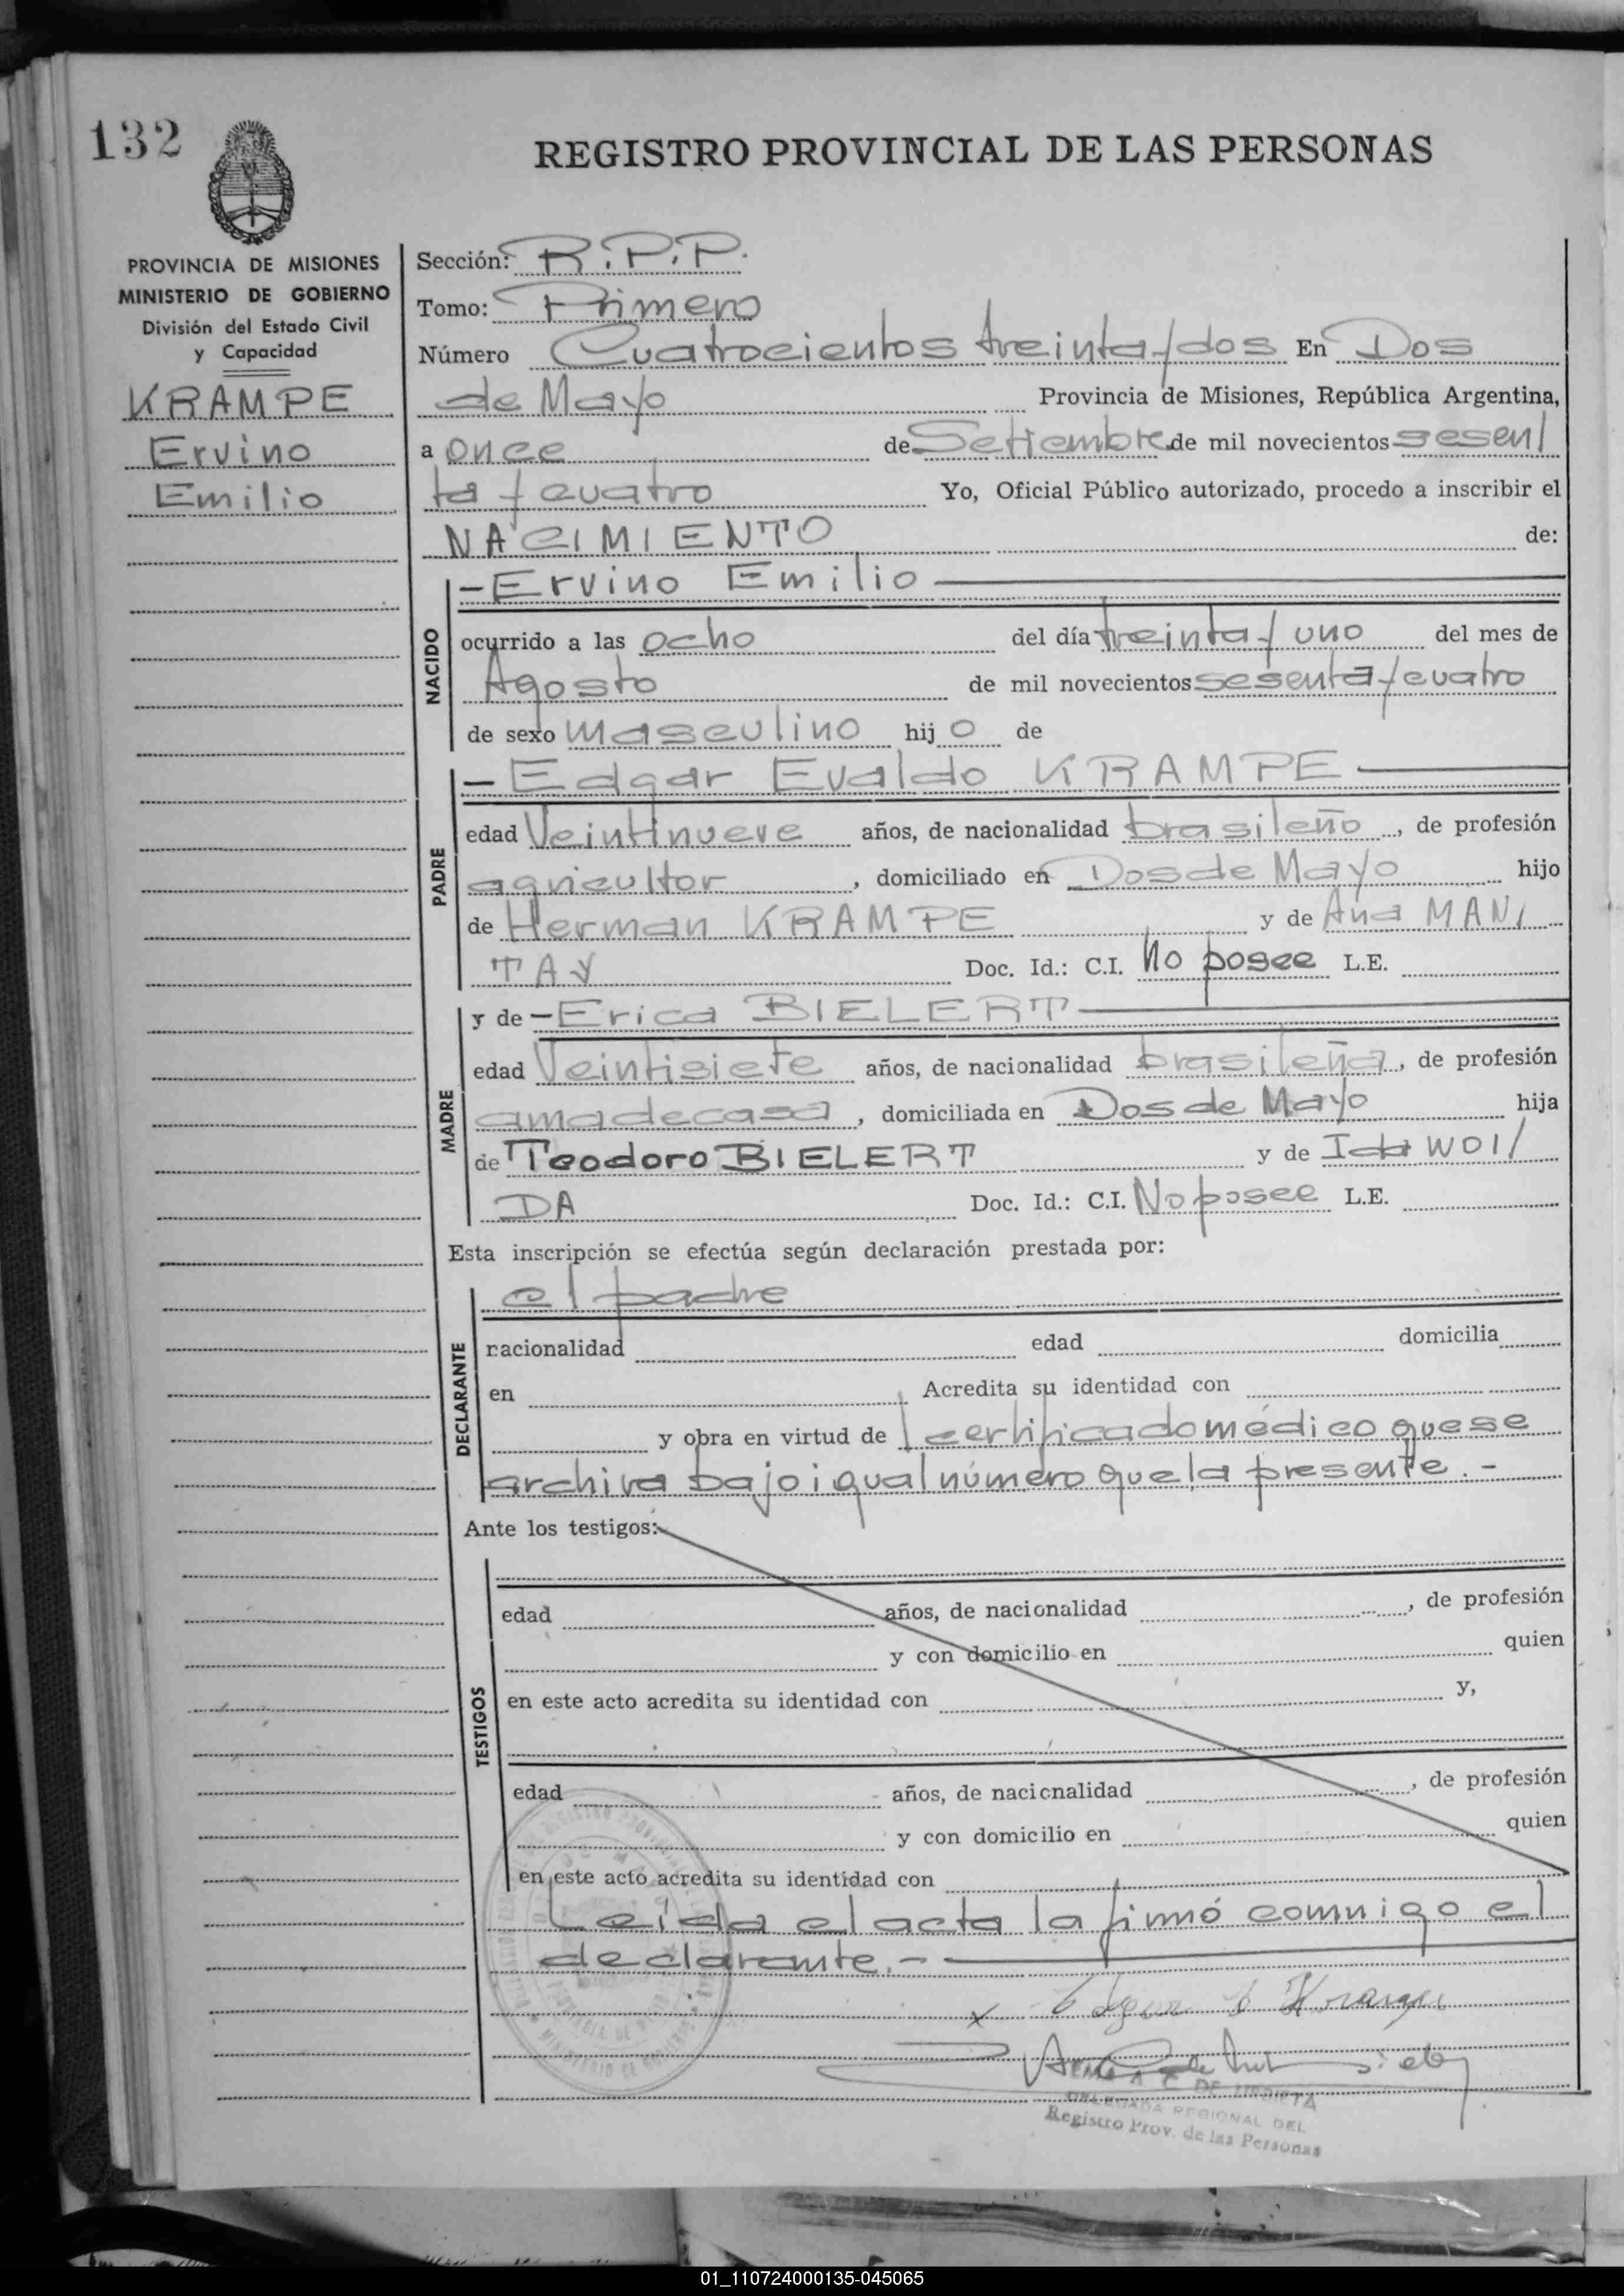 132
REGISTRO PROVINCIAL DE LAS PERSONAS
PROVINCIA DE MISIONES
MINISTERIO DE GOBIERNO
División del Estado Civil
y Capacidad
KRAMPE
Ervino
Emilio
Sección: R.P.P.
Tomo: Primero
Número Cuatrocientos treinta y dos En Dos
de Mayo Provincia de Misiones, República Argentina,
a once de Setiembre de mil novecientos sesen/
ta y cuatro Yo, Oficial Público autorizado, procedo a inscribir el
NACIMIENTO de:
NACIDO
-Ervino Emilio
ocurrido a las ocho del día treinta y uno del mes de
Agosto de mil novecientos sesenta y cuatro
de sexo masculino hijo de
PADRE
- Edgar Evaldo KRAMPE
edad Veintinueve años, de nacionalidad brasileño, de profesión
agricultor, domiciliado en Dos de Mayo hijo
de Herman KRAMPE y de Ana MAN/
TAY Doc. Id.: C.I. No posee L.E.
MADRE
y de -Erica BIELERT
edad Veintisiete años, de nacionalidad brasileña, de profesión
ama de casa, domiciliada en Dos de Mayo hija
de Teodoro BIELERT y de Ida WOI/
DA Doc. Id.: C.I. No posee L.E.
Esta inscripción se efectúa según declaración prestada por:
DECLARANTE
el padre
nacionalidad edad domicilia
en Acredita su identidad con
y obra en virtud de l certificado médico que se
archiva bajo igual número que la presente.-
Ante los testigos:
TESTIGOS
edad años, de nacionalidad , de profesión
y con domicilio en quien
en este acto acredita su identidad con y,
edad años, de nacionalidad , de profesión
y con domicilio en quien
en este acto acredita su identidad con
Leída el acta la firmó conmigo el
declarante.-
x Edgar E Krampe
DELEGADA REGIONAL DEL
Registro Prov. de las Personas
01_110724000135-045065